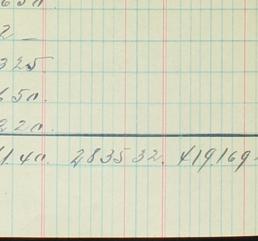 650.
2 –
325.
650.
220.
1140. 283532. 419,169